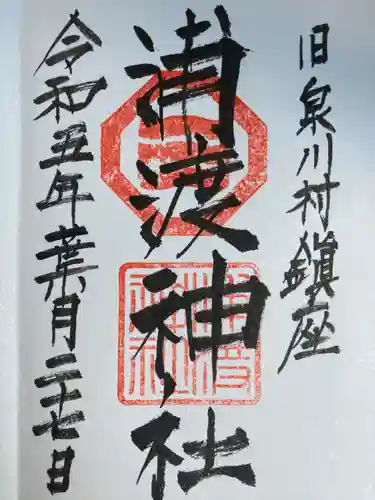 旧泉川村鎮座
浦渡神社
令和五年葉月二十七日